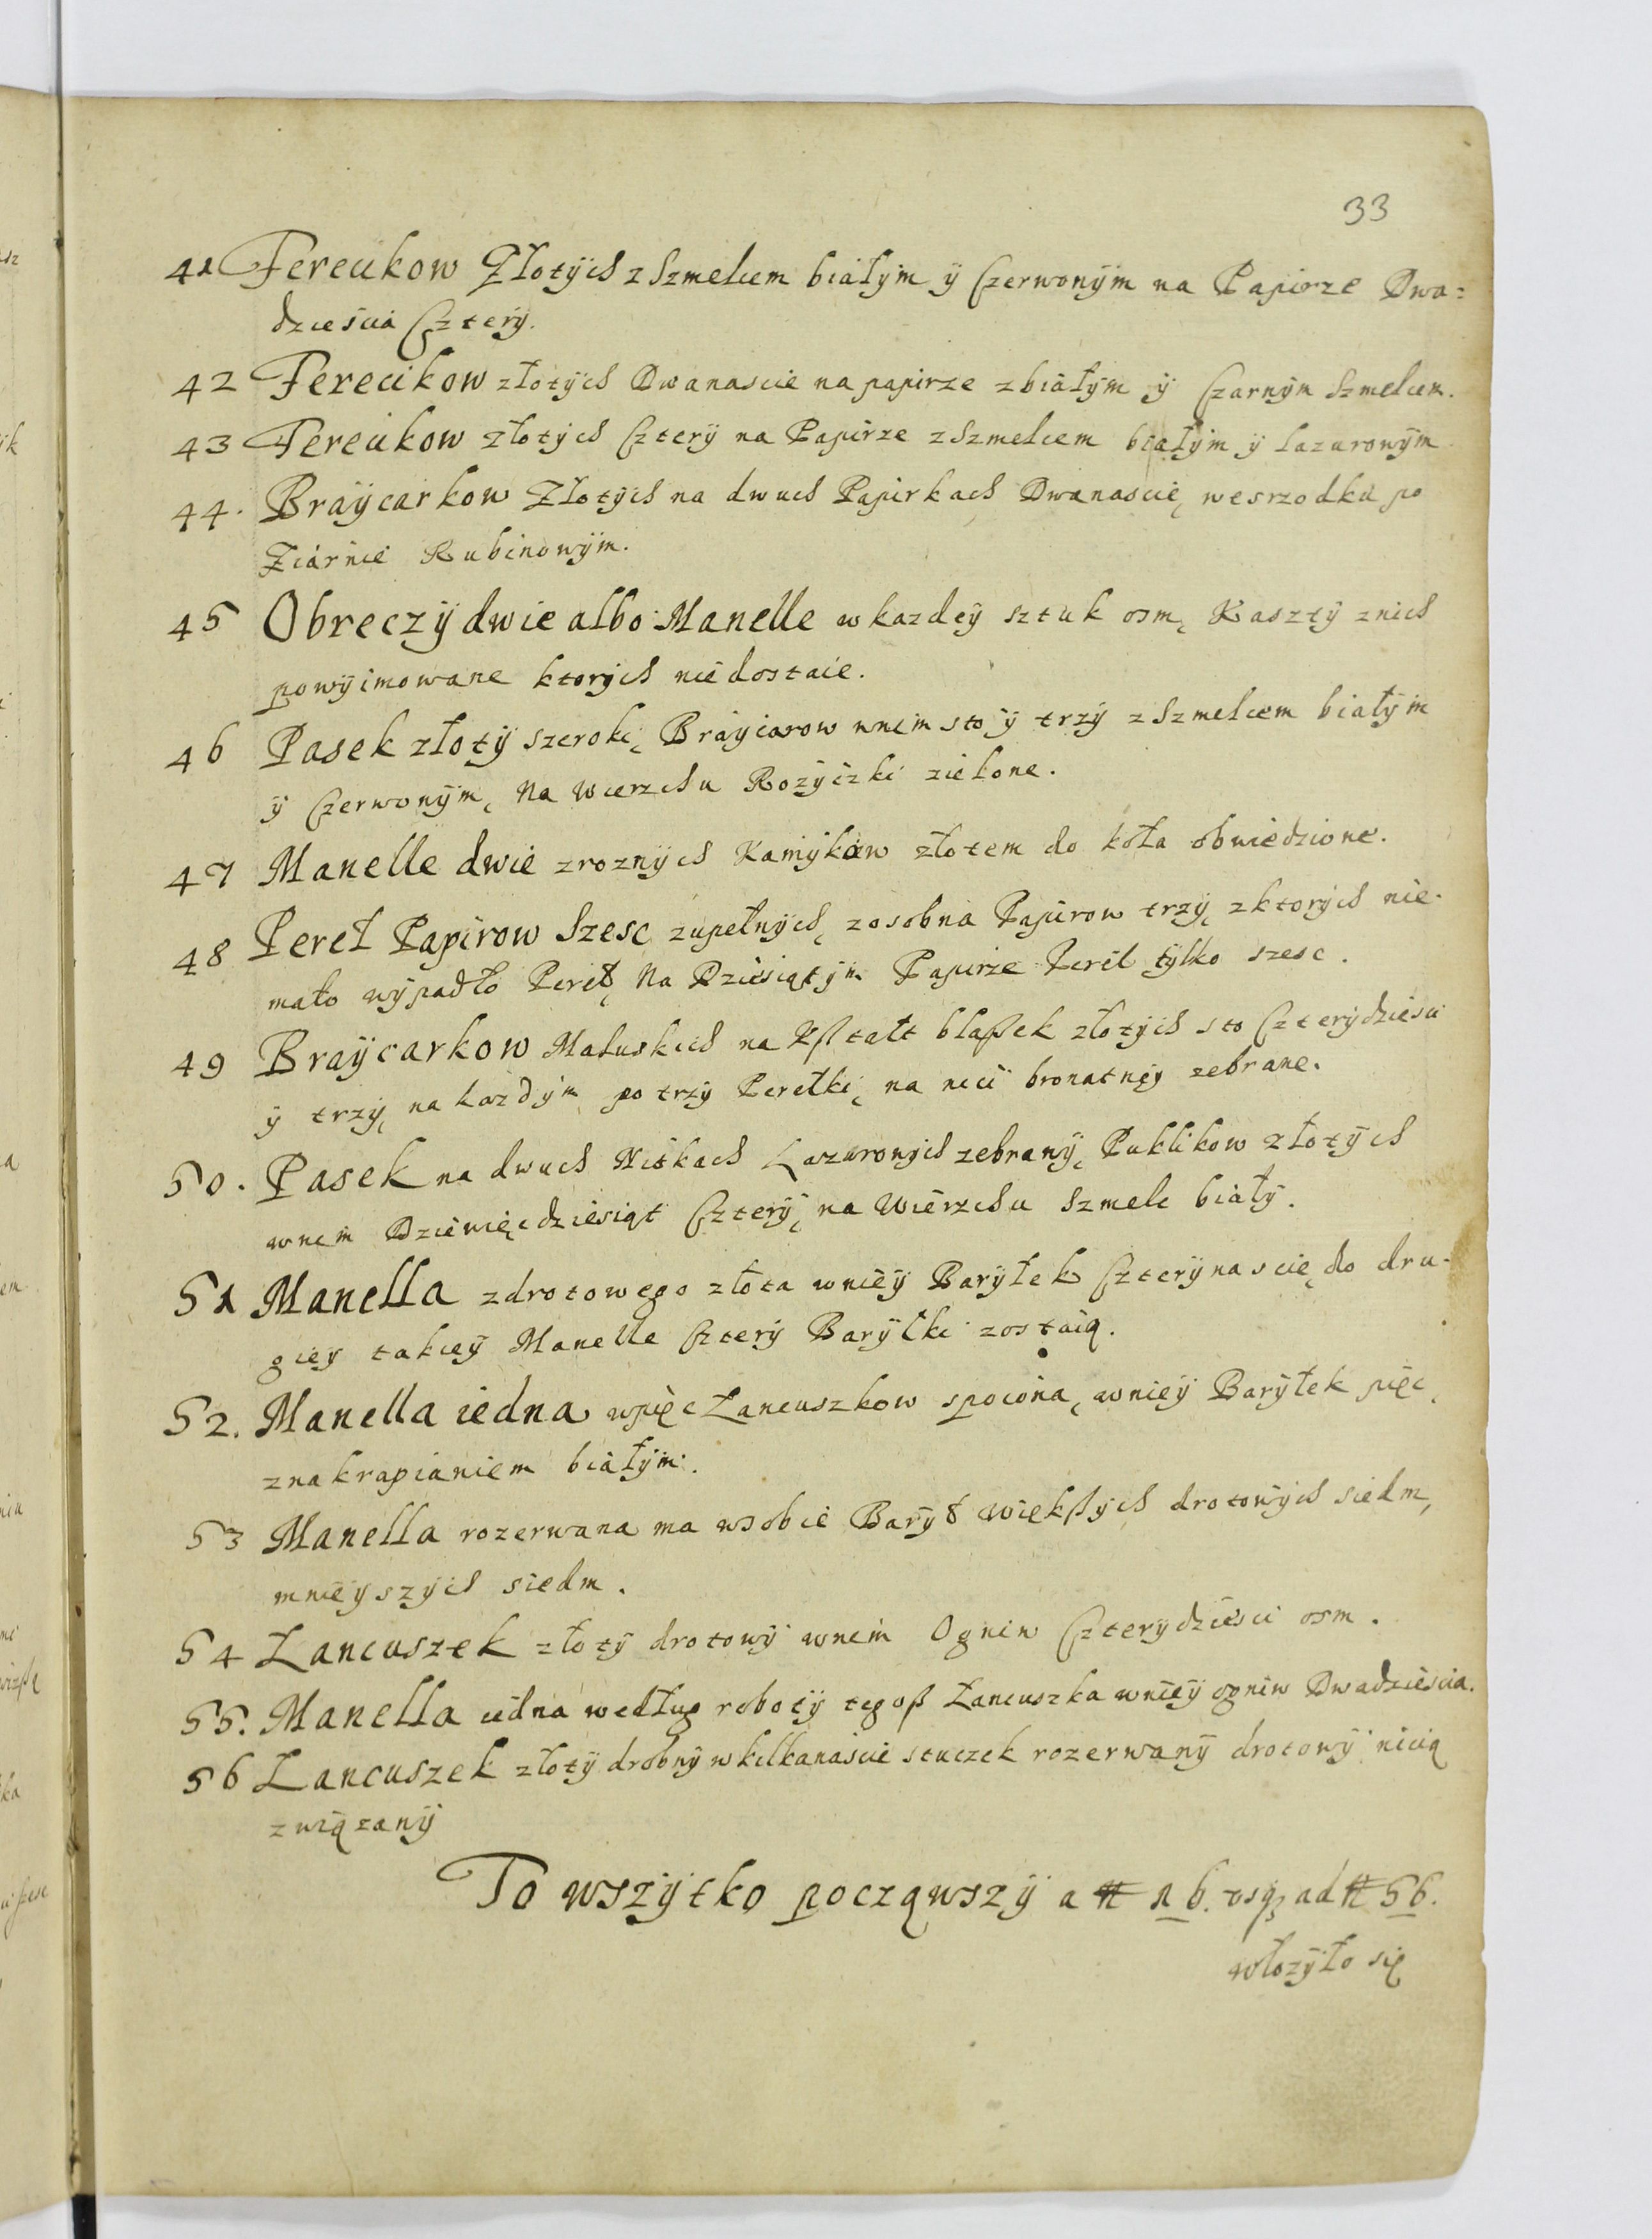 33
41 Ferecikow Złotÿch z Szmelcem białÿm ÿ Czerwonÿm na Papirze Dwa=
dziescia Czterÿ.
42 Ferecikow złotÿch Dwanascie na papirze z białÿm ÿ Czarnÿm Szmelcem.
43 Ferecikow złotÿch Czterÿ na Papirze z Szmelcem białÿm ÿ lazurowÿm
44. Braÿcarkow Złotÿch na dwuch Papirkach Dwanascie, wesrzodku po
Ziarnie Rubinowÿm.
45 Obreczÿ dwie albo Manelle w kazdeÿ sztuk osm, Kasztÿ znich
powÿimowane ktorÿch niedostaie.
46 Pasek złotÿ szeroki, Braÿcarow wnim sto ÿ trzÿ z Szmelcem białÿm
ÿ Czerwonÿm, Na wierzchu Rozÿczki zielone.
47 Manelle dwie z roznÿch Kamÿkow złotem do koła obwiedzione.
48 Pereł Papirow Szesc zupełnÿch, zosobna Papirow trzÿ, z ktorÿch nie-
mało wÿpadło Pereł, Na Dziesiątÿm Papirze Pereł tÿlko szesc.
49 Braÿcarkow Maluskich na kßtałt blaßek złotÿch sto Czterÿdziesci
ÿ trzÿ, na kazdÿm po trzÿ Perełki, na nici bronatneÿ zebrane.
50. Pasek na dwuch Nitkach Lazurowÿch zebranÿ, Puklikow złotÿch
wnim Dziewięcdziesiąt Czterÿ, na Wierzchu Szmelc białÿ.
51 Manella z drotowego złota wnieÿ Barÿłek Czterÿnascie, do dru-
gieÿ takieÿ Manelle Czterÿ Barÿłki zostaią.
52. Manella iedna wpięc Łancuszkow spoiona, wnieÿ Barÿłek pięc,
z nakrapianiem białÿm.
53 Manella rozerwana ma wsobie Barÿł więkßÿch drotowÿch siedm,
mnieÿszÿch siedm.
54 Łancuszek złotÿ drotowÿ wnim Ogniw Czterÿdziesci osm.
55. Manella iedna według robotÿ tegoß Łancuszka wnieÿ ogniw Dwadziescia.
56 Łancuszek złotÿ drobnÿ w kilkanascie stuczek rozerwanÿ drotowÿ nicią
związanÿ
To wszÿtko począwszÿ a # 16. usq ad # 56.
włozÿło się